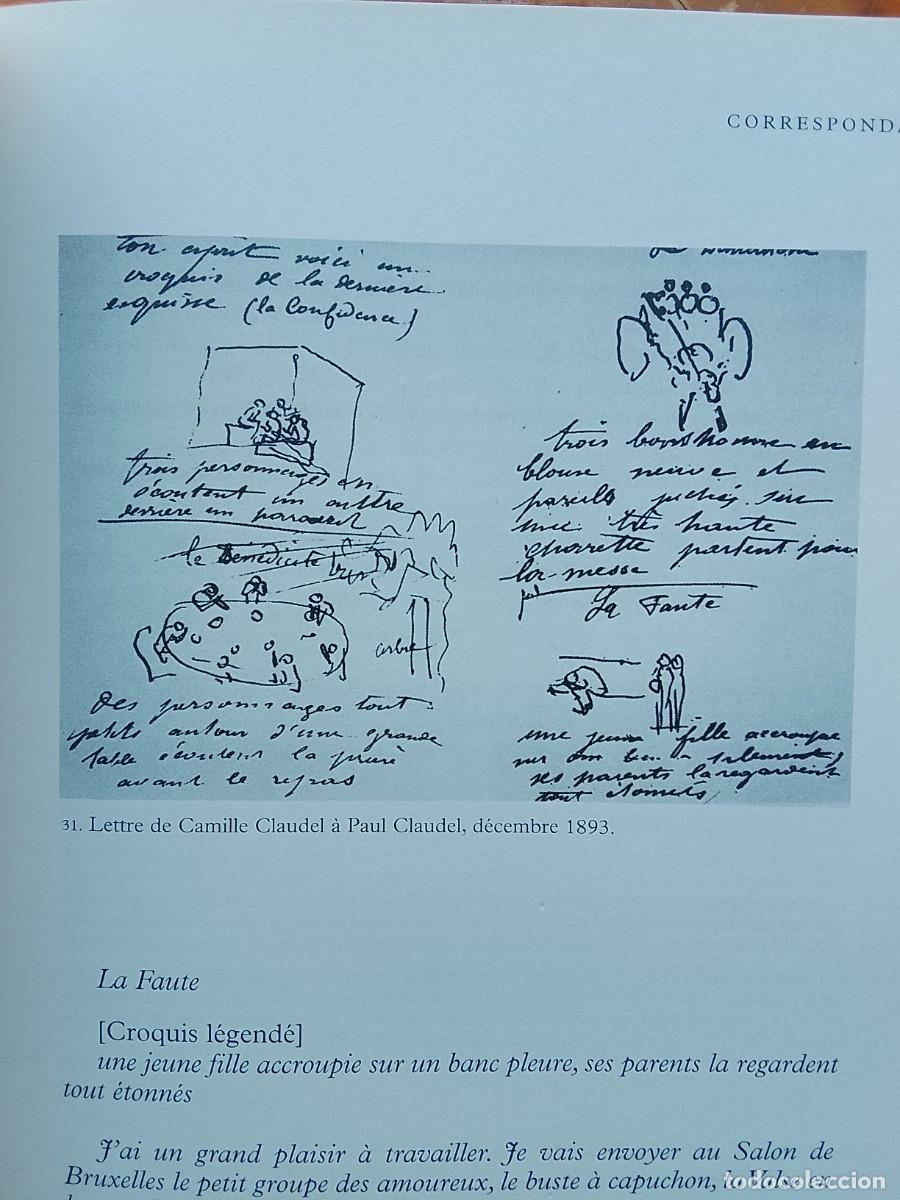 CORRESPONDA
ton esprit voici un
croquis de la dernière
esquisse (la Confidence)
trois personnages en
écoutent un autre
derrière un paravent
le Bénédicité
arbre
Des personnages tout
petits autour d'une grande
table écoutent la prière
avant le repas
Le Dimanche
trois bonshommes en
blouse neuve et
pareils juchés sur
une très haute
charrette partent pour
la messe
La Faute
une jeune fille accroupie
sur un banc pleure,
ses parents la regardent
tout étonnés
31. Lettre de Camille Claudel à Paul Claudel, décembre 1893.
La Faute
[Croquis légendé]
une jeune fille accroupie sur un banc pleure, ses parents la regardent
tout étonnés
J'ai un grand plaisir à travailler. Je vais envoyer au Salon de
Bruxelles le petit groupe des amoureux, le buste à capuchon, la
todocoleccion